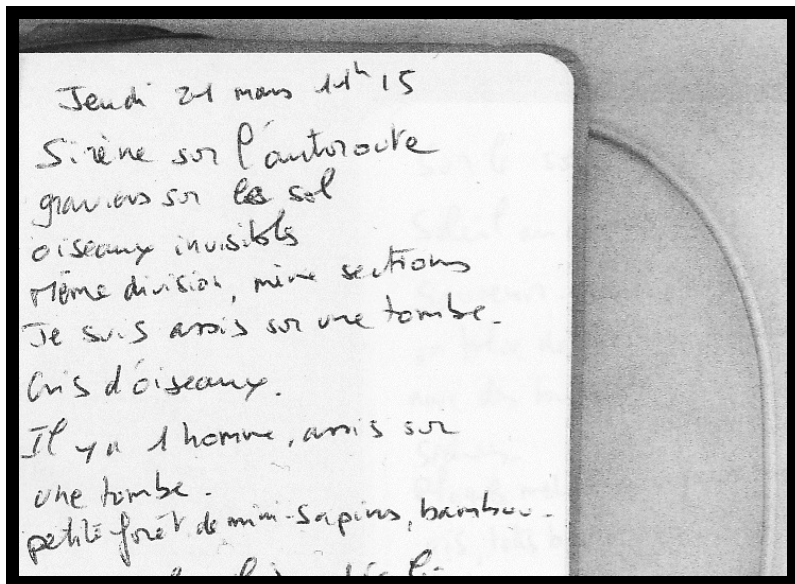 Jeudi 21 mars 11h15
Sirène sur l'autoroute
graviers sur le sol
oiseaux invisibles
Même division, même sections
Je suis assis sur une tombe.
Cris d'oiseaux.
Il y a 1 homme, assis sur
une tombe.
petite forêt de mini-sapins, bambou.